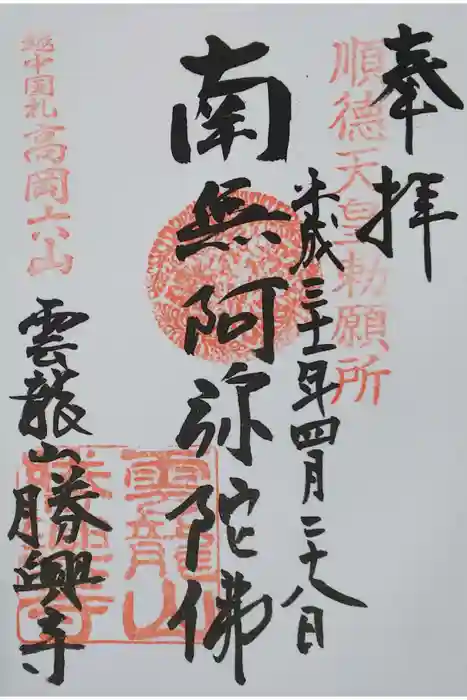 奉拝
順德天皇勅願所
平成三十一年四月二十八日
南無阿弥陀佛
越中国札高岡六山
雲龍山勝興寺
雲龍山勝興寺